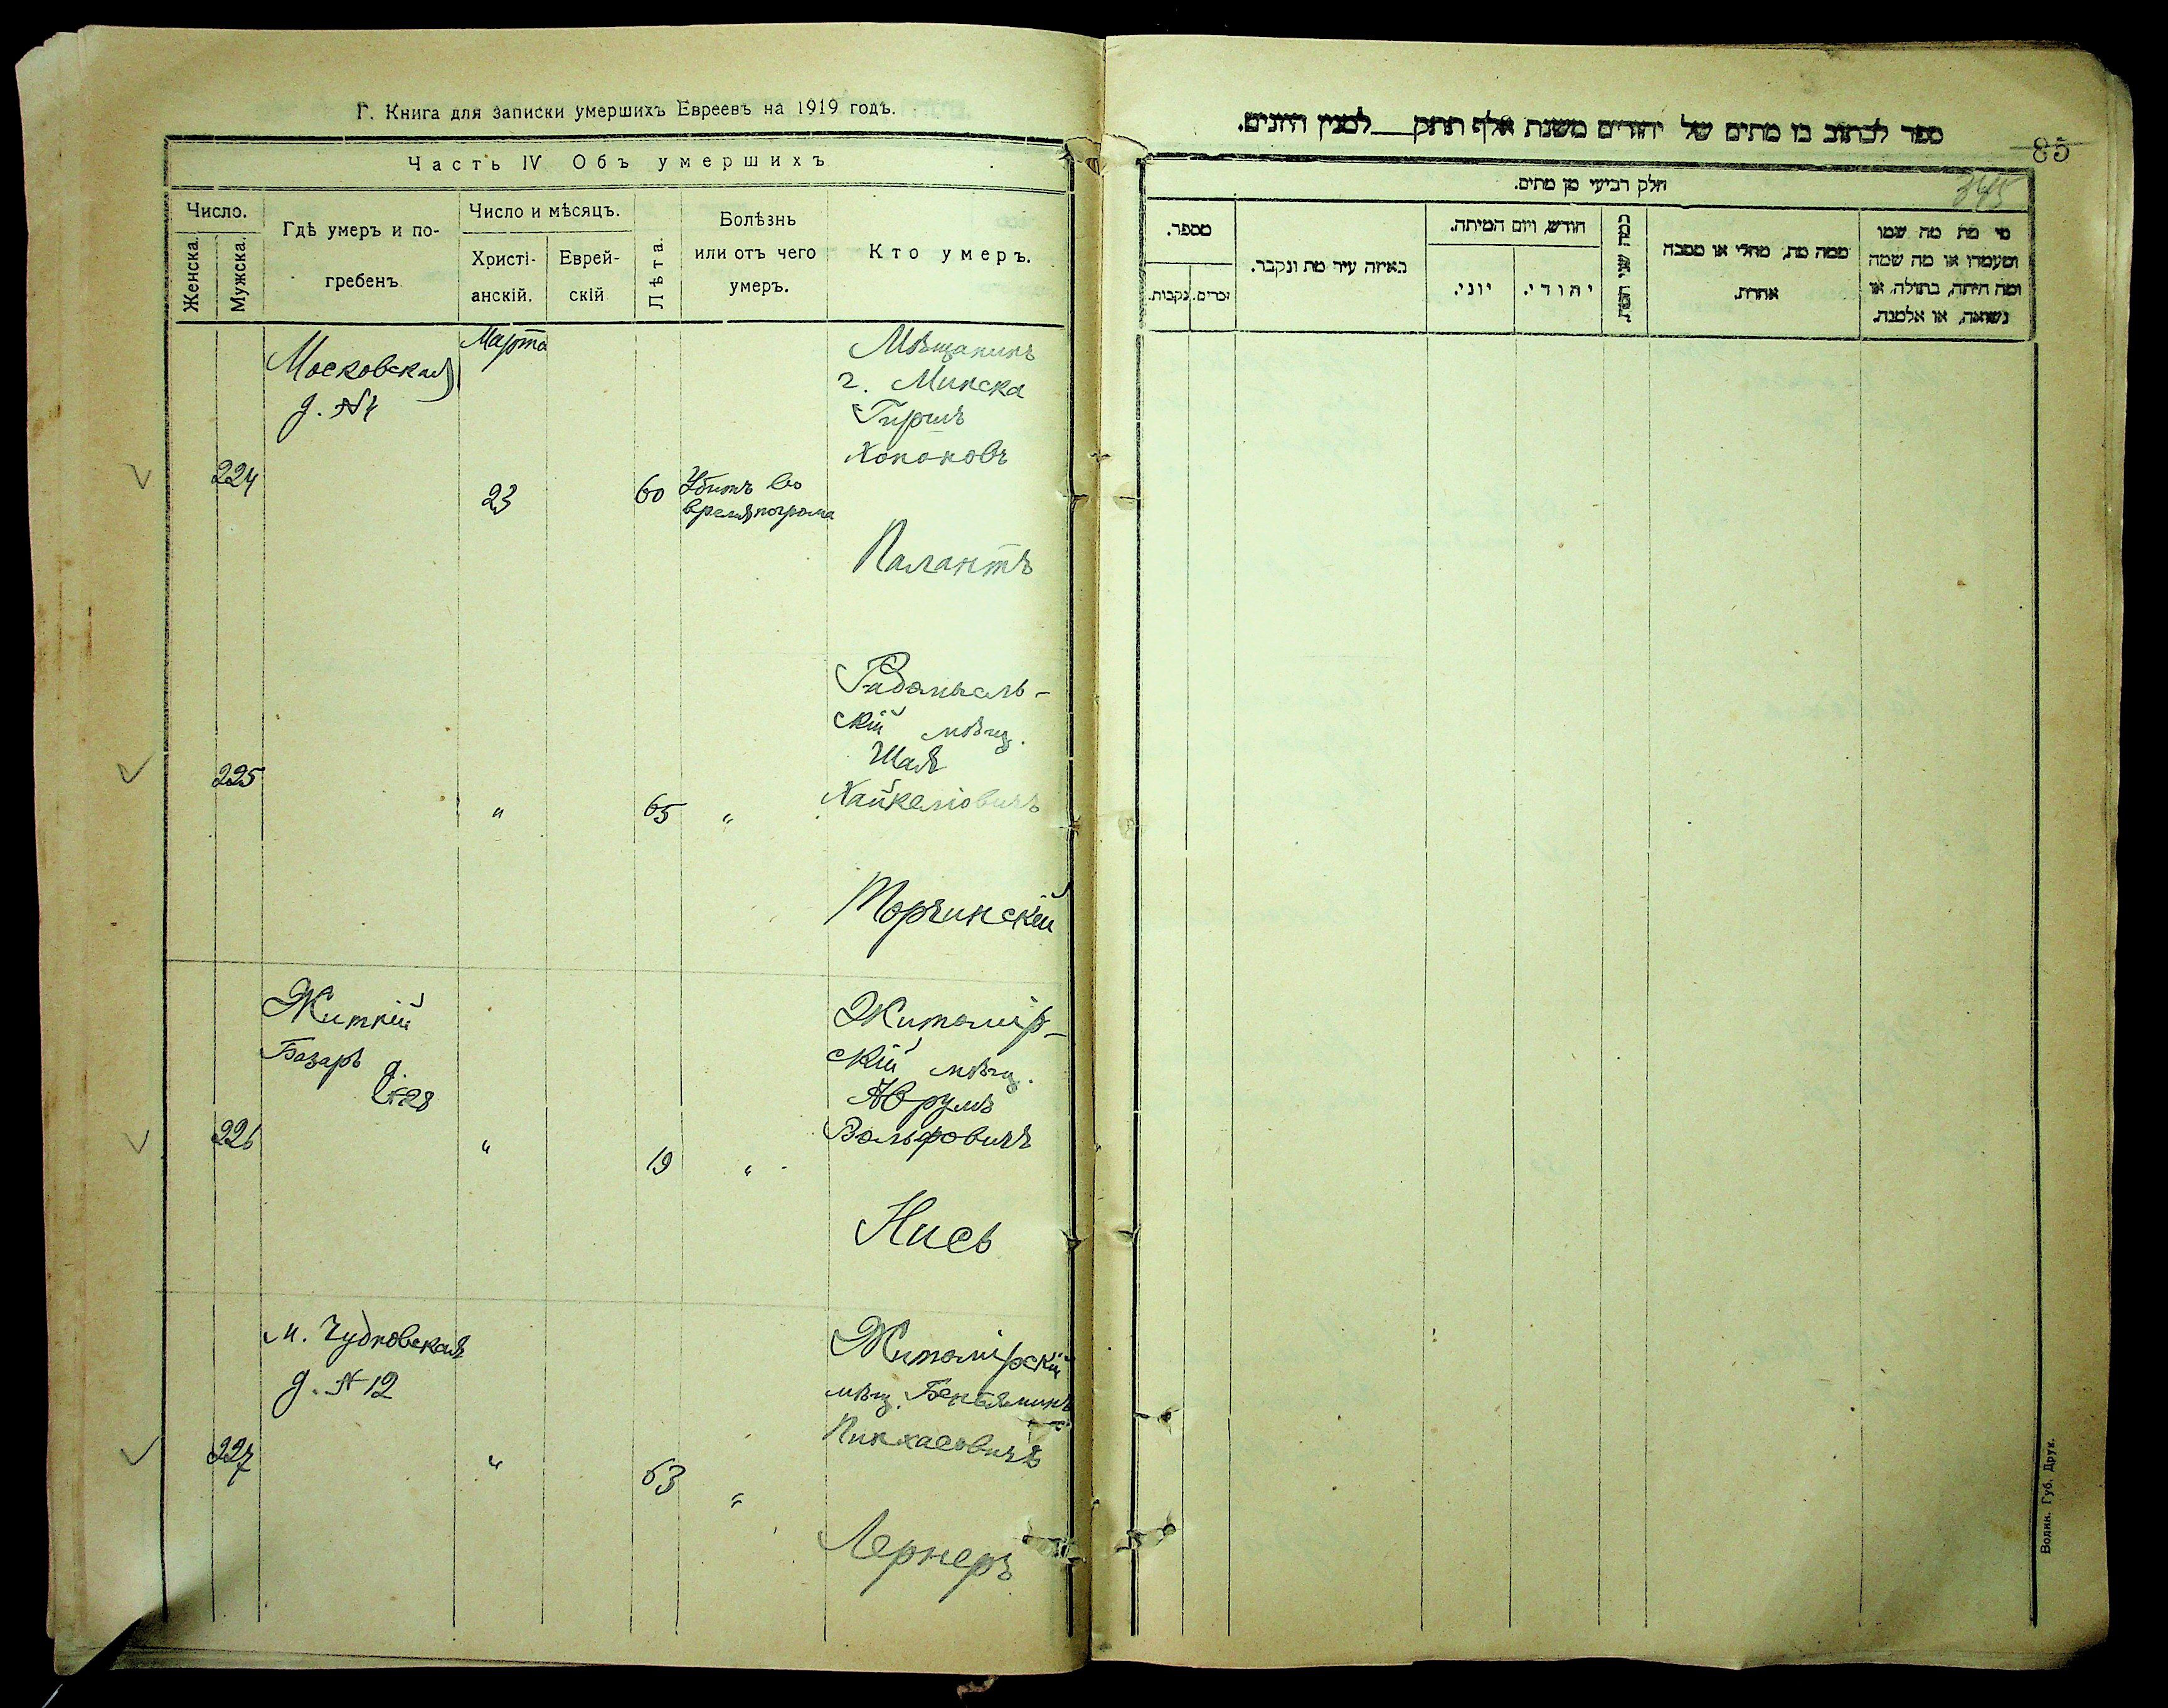 Г. Книга для записки умершихъ Евреевъ на 1919 годъ.
Часть IV Объ умершихъ
Число.
Женска.
Мужска.
Гдѣ умеръ и по-
гребенъ
Число и мѣсяцъ.
Христі-
анскій.
Еврей-
скій
Лѣта.
Болѣзнь
или отъ чего
умеръ.
Кто умеръ.
Московская
д. №4
Марта
Мѣщанинъ
г. Минска
Гиршъ
Хононовъ
224
23
60
Убитъ во
время погрома
Палантъ
скій мѣщ.
Шая
225
"
65
"
Хайкеліовичъ
Торчинскій
Житній
Базаръ д.
№28
Житомір-
скій мѣщ.
Аврумъ
226
"
19
"
Вольфовичъ
Нисъ
М. Чудновская
д. № 12
Житомірскій
мѣщ. Беньяминъ
Пинхасовичъ
227
"
63
"
Лернеръ
ספר לכתוב בו מתים של יהודים משנת אלף תתק __ למנין היונים.
85
345
חלק רביעי מן מתים.
מספר.
זכרים.
נקבות.
באיזה עיר מת ונקבר.
חודש, ויום המיתה.
יוני.
יהודי.
כמה שני המת.
ממה מת, מחלי או מסבה
אחרת.
מי מת מה שמו
ומעמדו או מה שמה
ומה היתה, בתולה, או
נשואה, או אלמנה.
Волин. Губ. Друк.